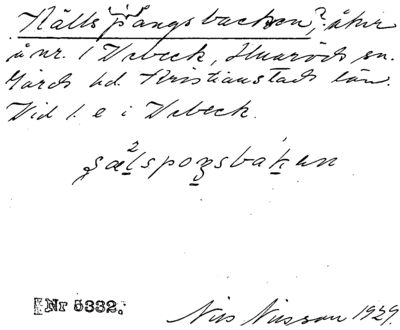 Källspångsbacken, åker
å nr. 1 Vebeck, Huaröds sn.
Gärds hd. Kristianstads län.
Vid l. e i Vebeck.
[Nr 5332.
Nils Nilsson 1929.